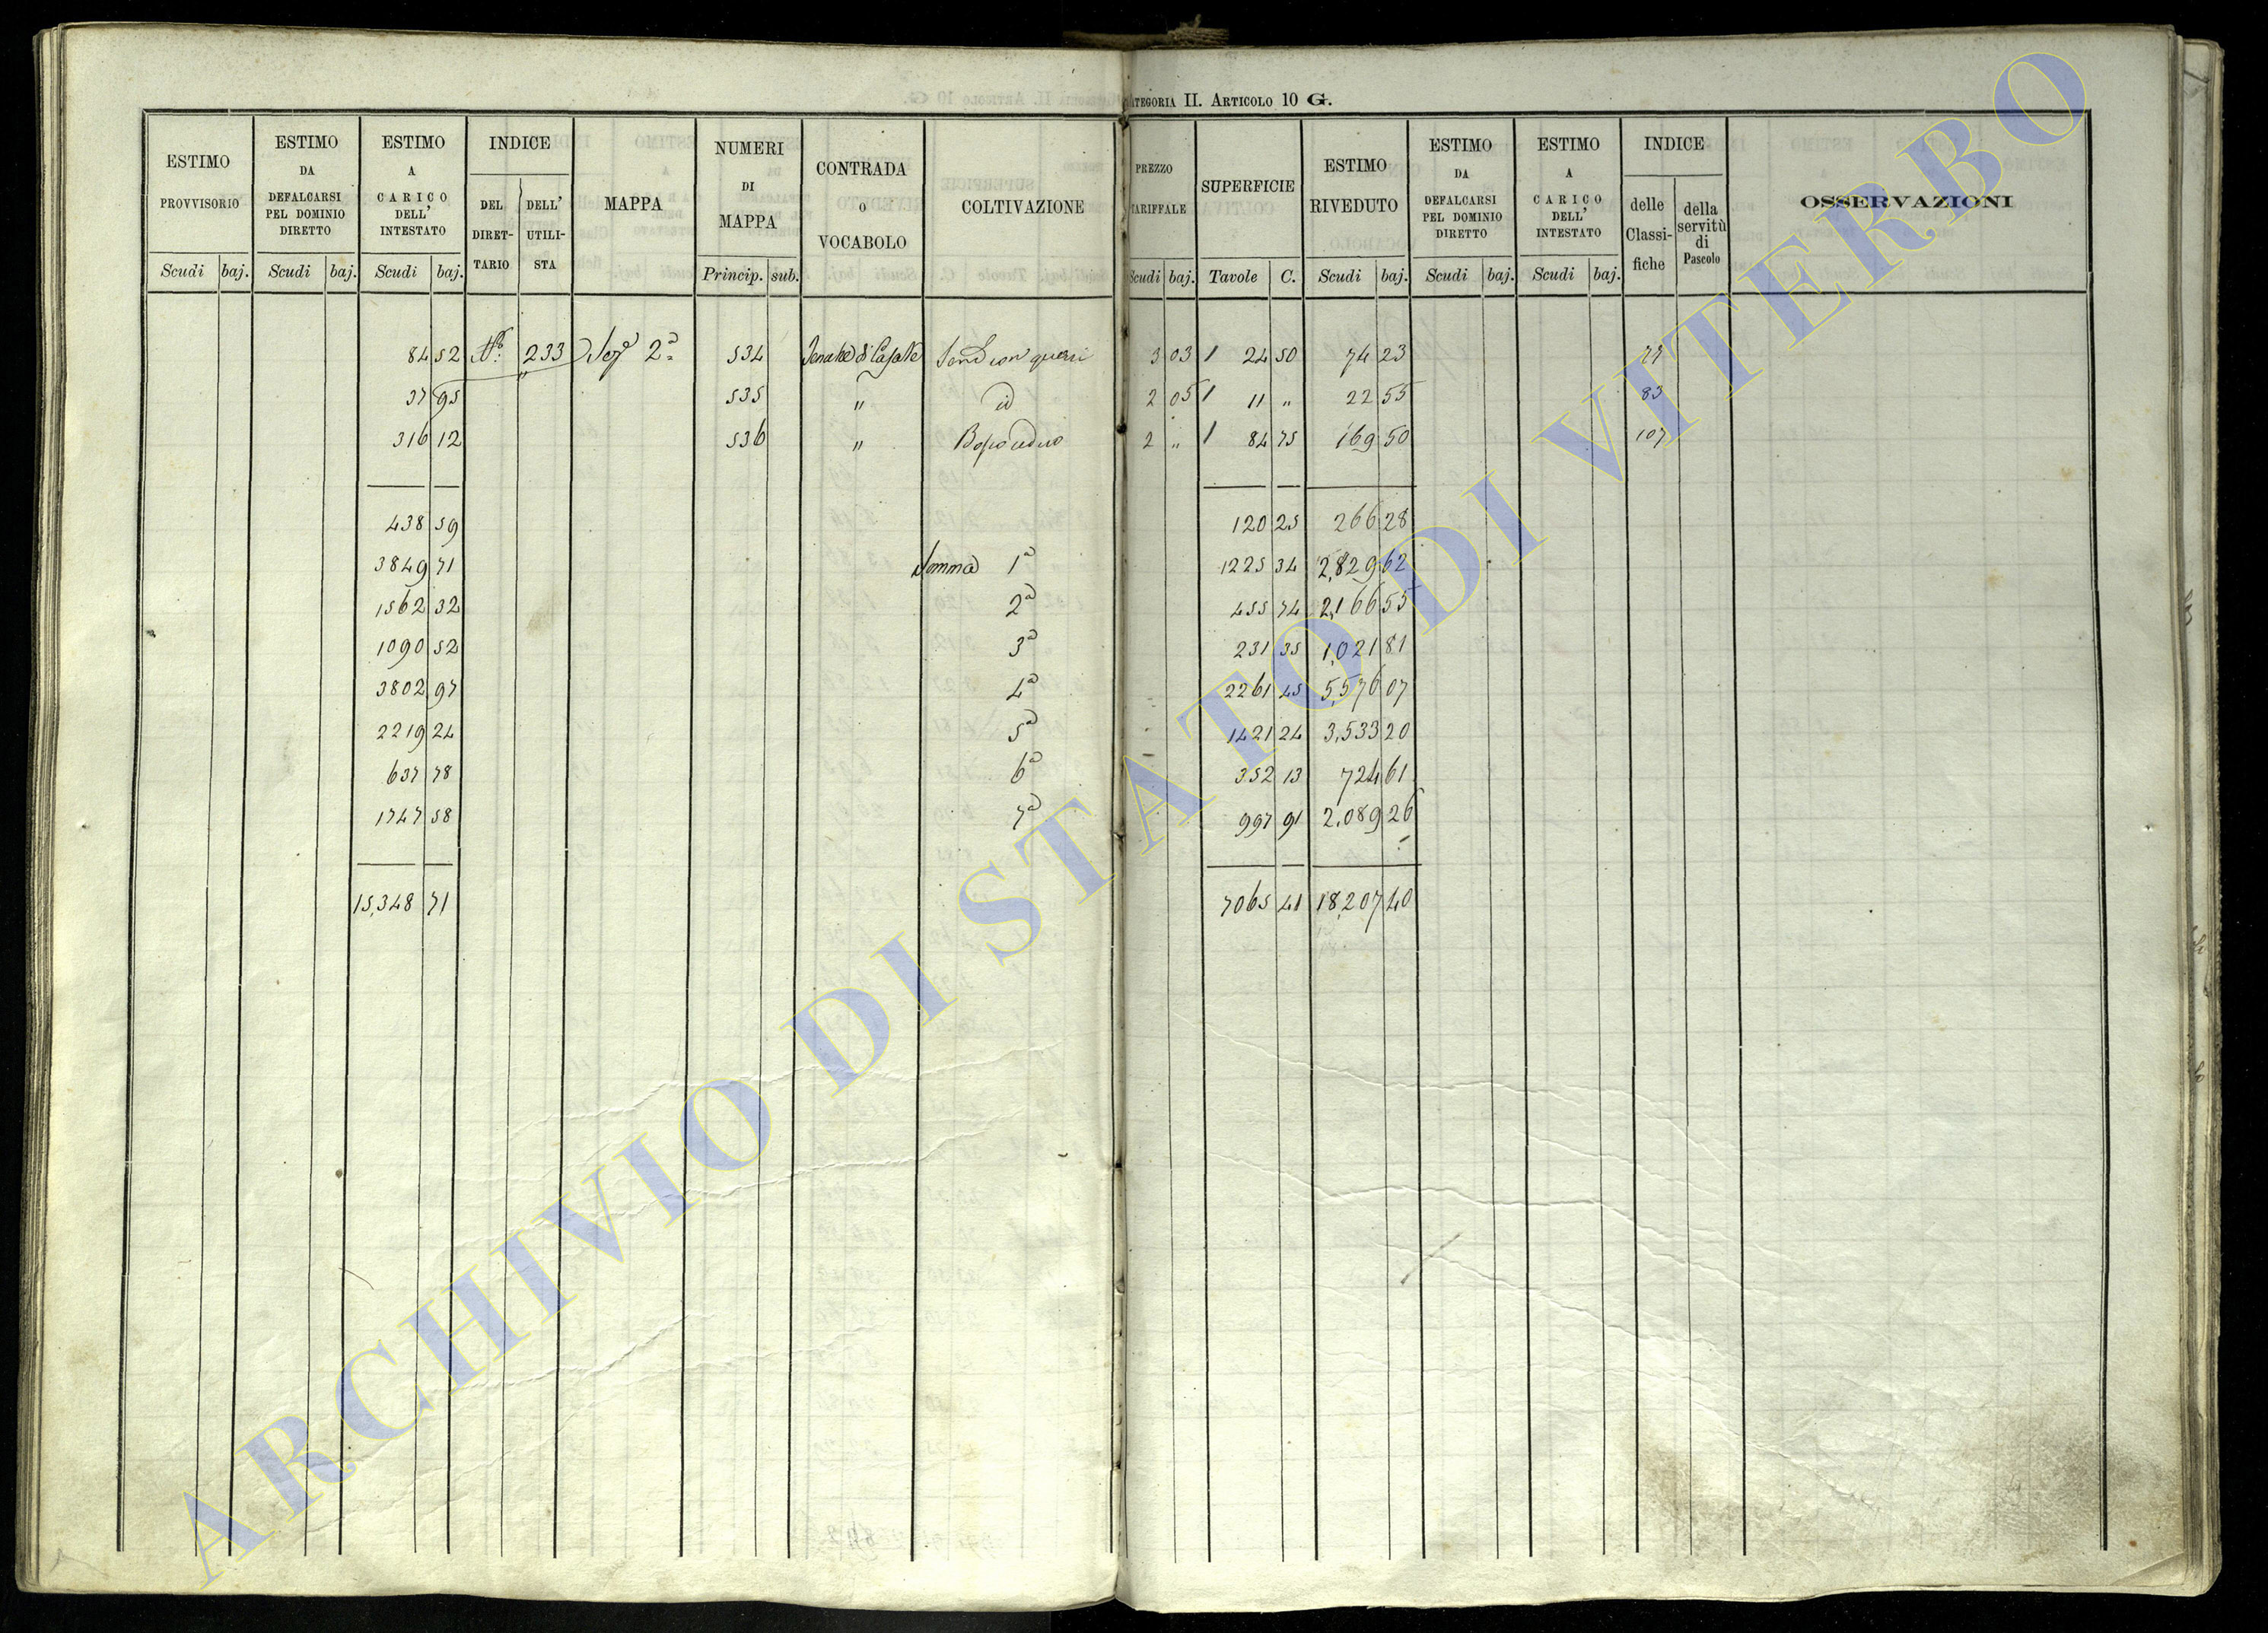 CATEGORIA II. ARTICOLO 10 G.
ESTIMO PROVVISORIO Scudi baj.
ESTIMO DA DEFALCARSI PEL DOMINIO DIRETTO Scudi baj.
ESTIMO A CARICO DELL' INTESTATO Scudi baj.
INDICE DEL DIRETTARIO DELL' UTILISTA
MAPPA
NUMERI DI MAPPA Princip. sub.
CONTRADA O VOCABOLO
COLTIVAZIONE
PREZZO TARIFFALE Scudi baj.
SUPERFICIE Tavole C.
ESTIMO RIVEDUTO Scudi baj.
ESTIMO DA DEFALCARSI PEL DOMINIO DIRETTO Scudi baj.
ESTIMO A CARICO DELL' INTESTATO Scudi baj.
INDICE delle Classifiche della servitù di Pascolo
OSSERVAZIONI
84 52 233 2ª 534 3 03 1 24 50 74 23 77
37 95 535 " id 2 05 1 11 " 22 55 83
316 12 536 " Bosco ceduo 2 " 1 84 75 169 50 107
438 59 120 25 266 28
3849 71 Somma 1ª 1225 34 2,829 62
1562 32 2ª 455 74 2,166 55
1090 52 3ª 231 35 1,021 81
3802 97 4ª 2261 45 5,576 07
2219 24 5ª 1421 24 3,533 20
637 78 6ª 352 13 724 61
1747 58 7ª 997 91 2,089 26
15,348 71 7065 41 18,207 40
ARCHIVIO DI STATO DI VITERBO